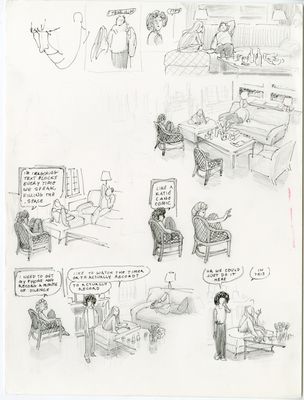 I'M IMAGINING
TEXT BLOCKS
EVERY TIME
WE SPEAK,
FILLING THE
SPACE
LIKE A
KATIE
COMIC.
I NEED TO GET
MY PHONE AND
RECORD A MINUTE
OF SILENCE
LIKE TO WATCH THE TIMER
OR TO ACTUALLY RECORD?
TO ACTUALLY
RECORD
OR WE COULD
JUST DO IT
HERE
IN
THIS